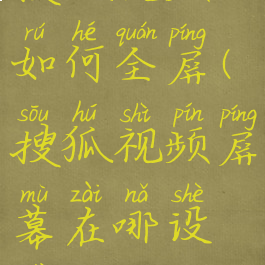 rú hé quán píng
如何全屏(
sōu hú shì pín píng
搜狐视频屏
mù zài nǎ shè
幕在哪设